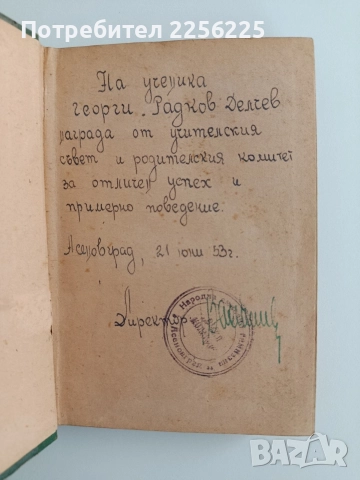 ПОМОЩНИК 2256225
На ученика
Георги Радков Делчев
награда от учителския
съвет и родителския комитет
за отличен успех и
примерно поведение.
Асеновград, 21 юни 53г.
Директор:
bazar
БГ